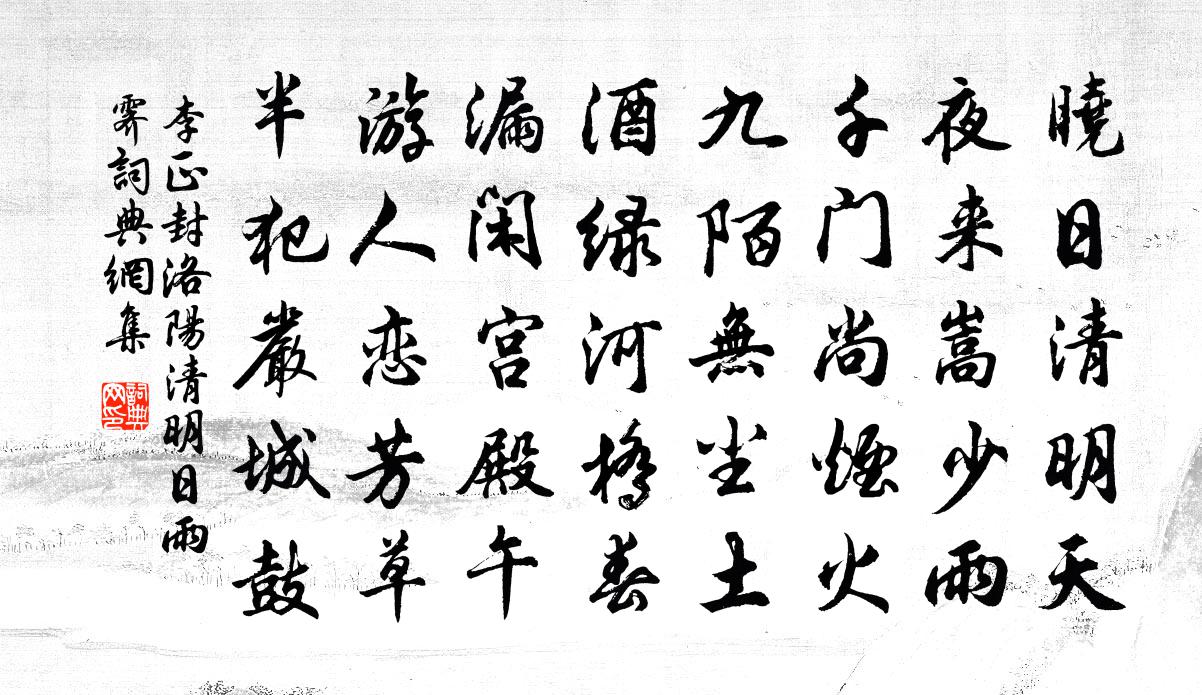 曉日清明天
夜来嵩少雨
千门尚煙火
九陌無尘土
酒绿河橋春
漏闲宫殿午
游人恋芳草
半犯嚴城鼓
李正封洛陽清明日雨
霁詞典網集
詞典
网印